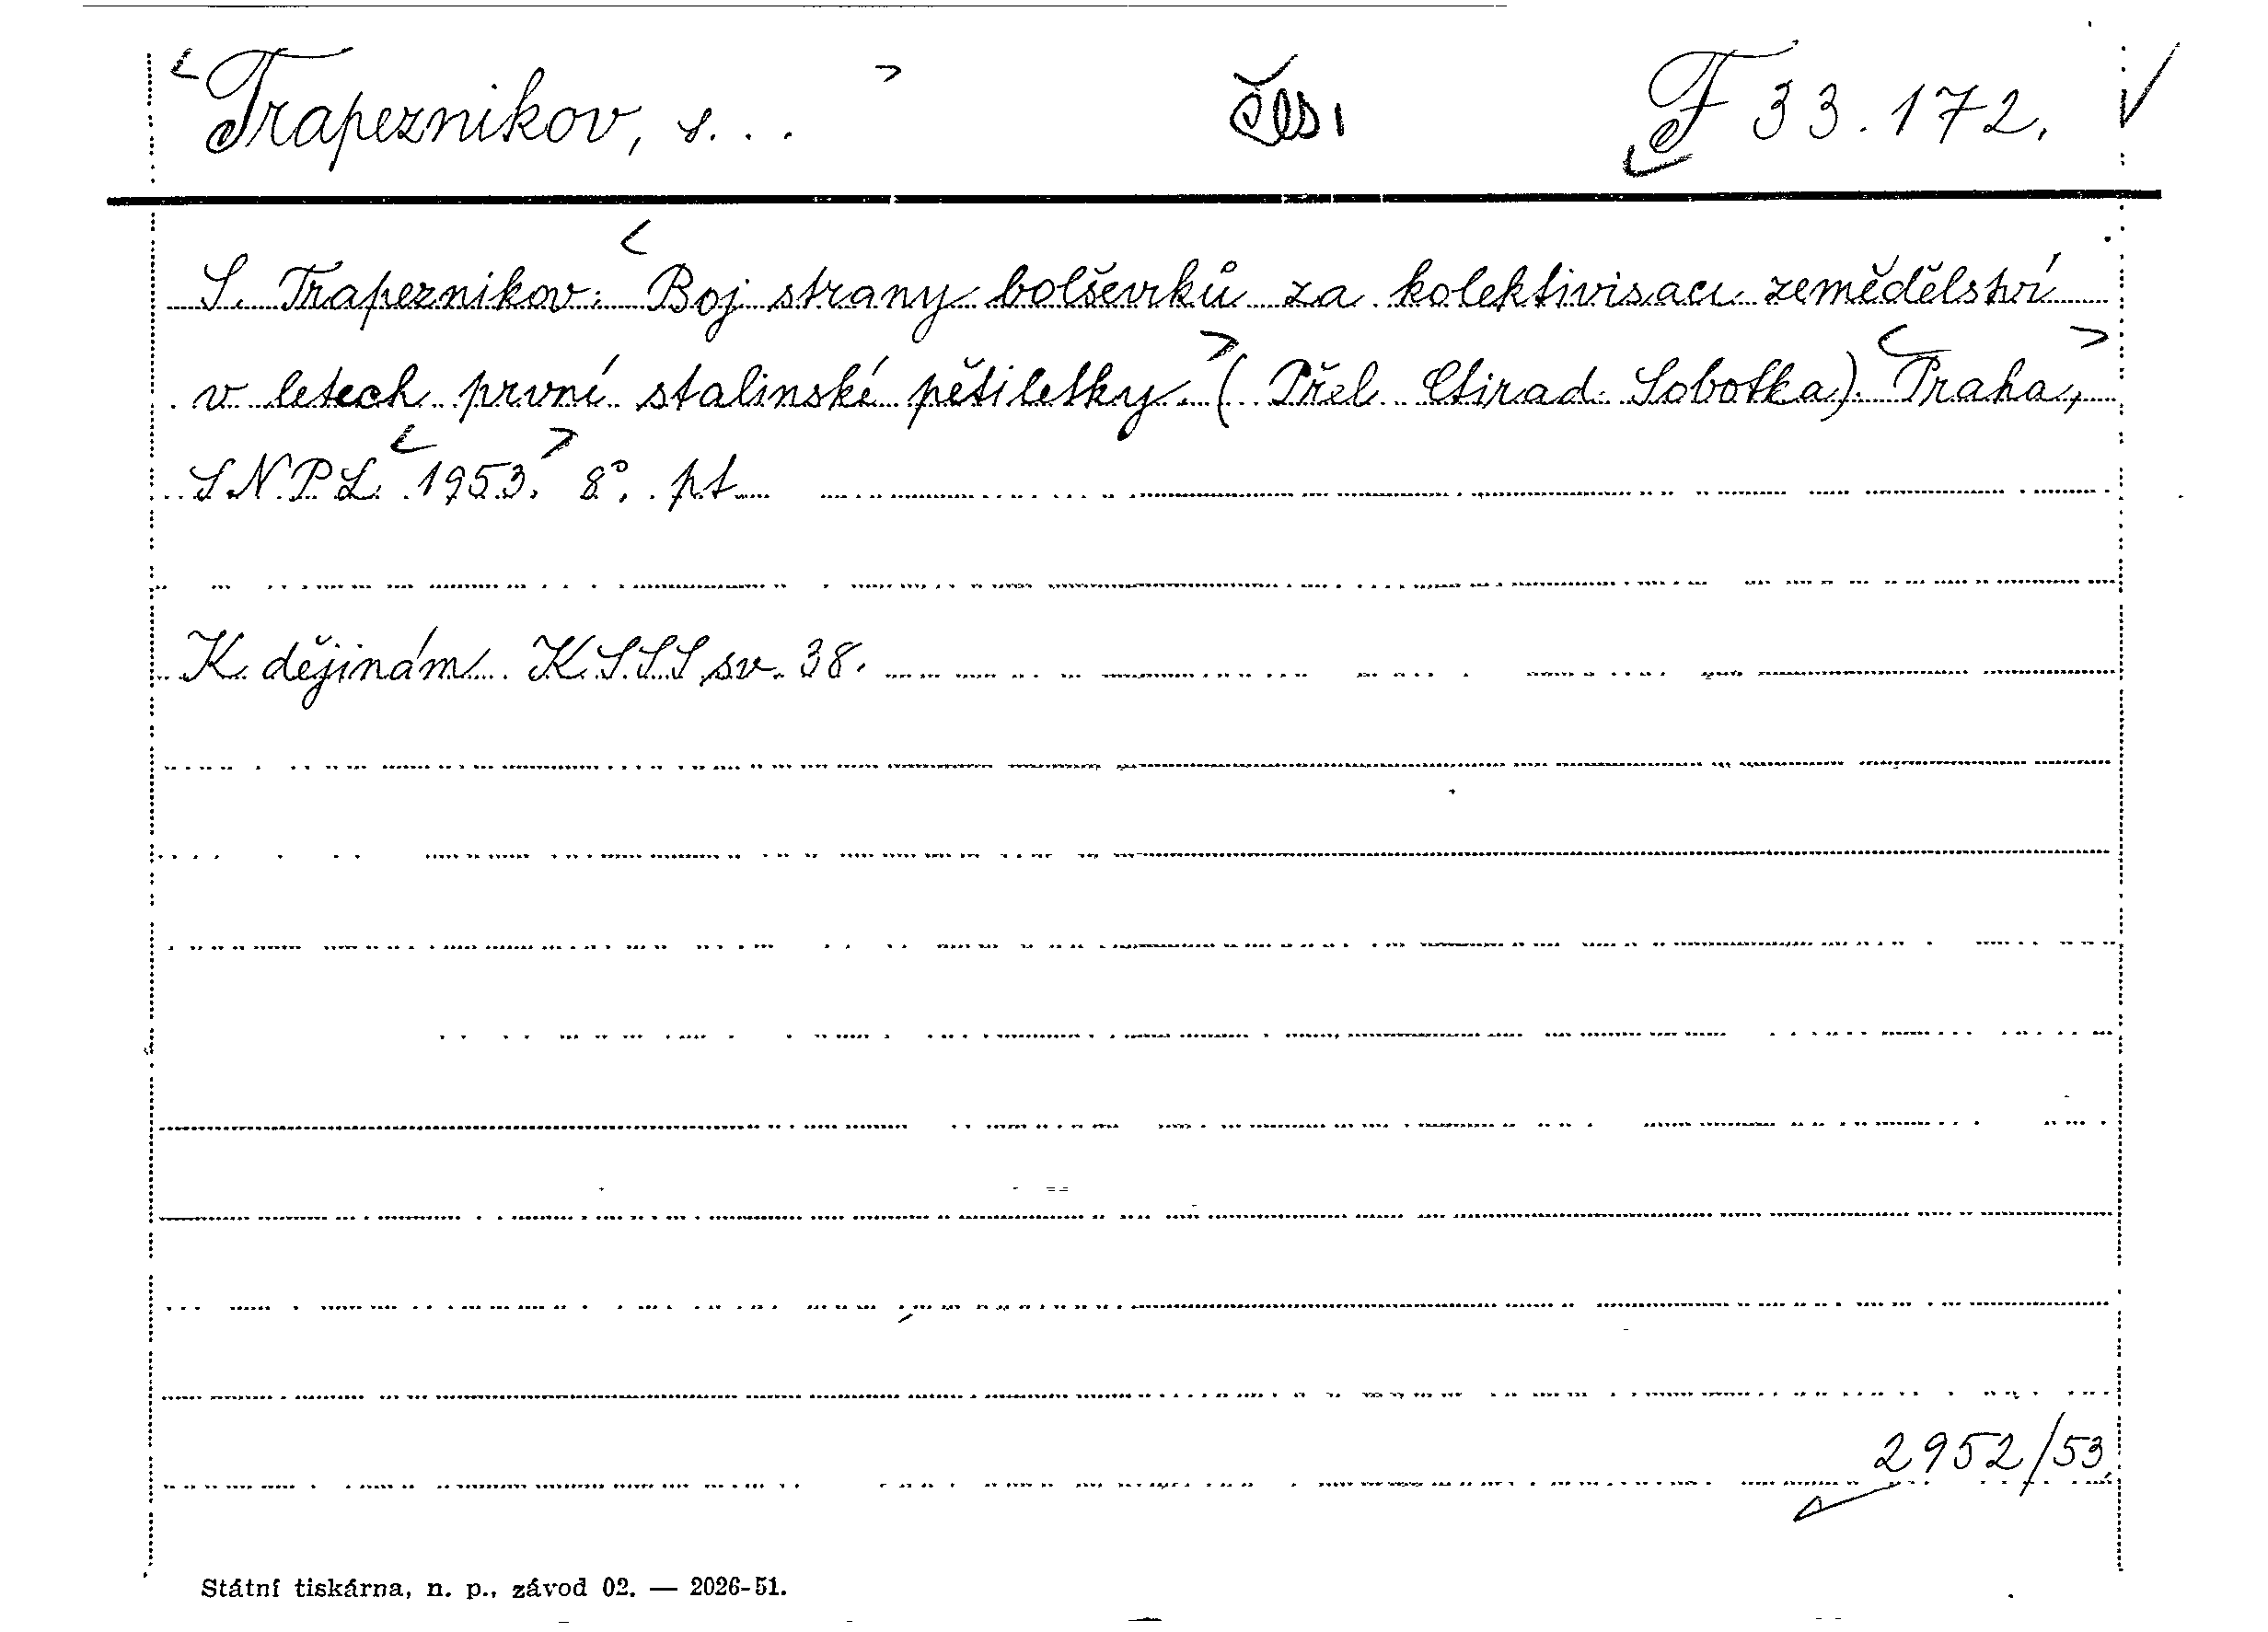 Trapeznikov, S... F 33.172.
S. Trapeznikov: Boj strany bolševiků za kolektivisaci zemědělství
v letech první stalinské pětiletky. (Přel. Ctirad Sobotka). Praha,
SNPL 1953. 8°. pt
K dějinám KSSS sv. 38.
2952/53.
Státní tiskárna, n. p., závod 02. — 2026-51.